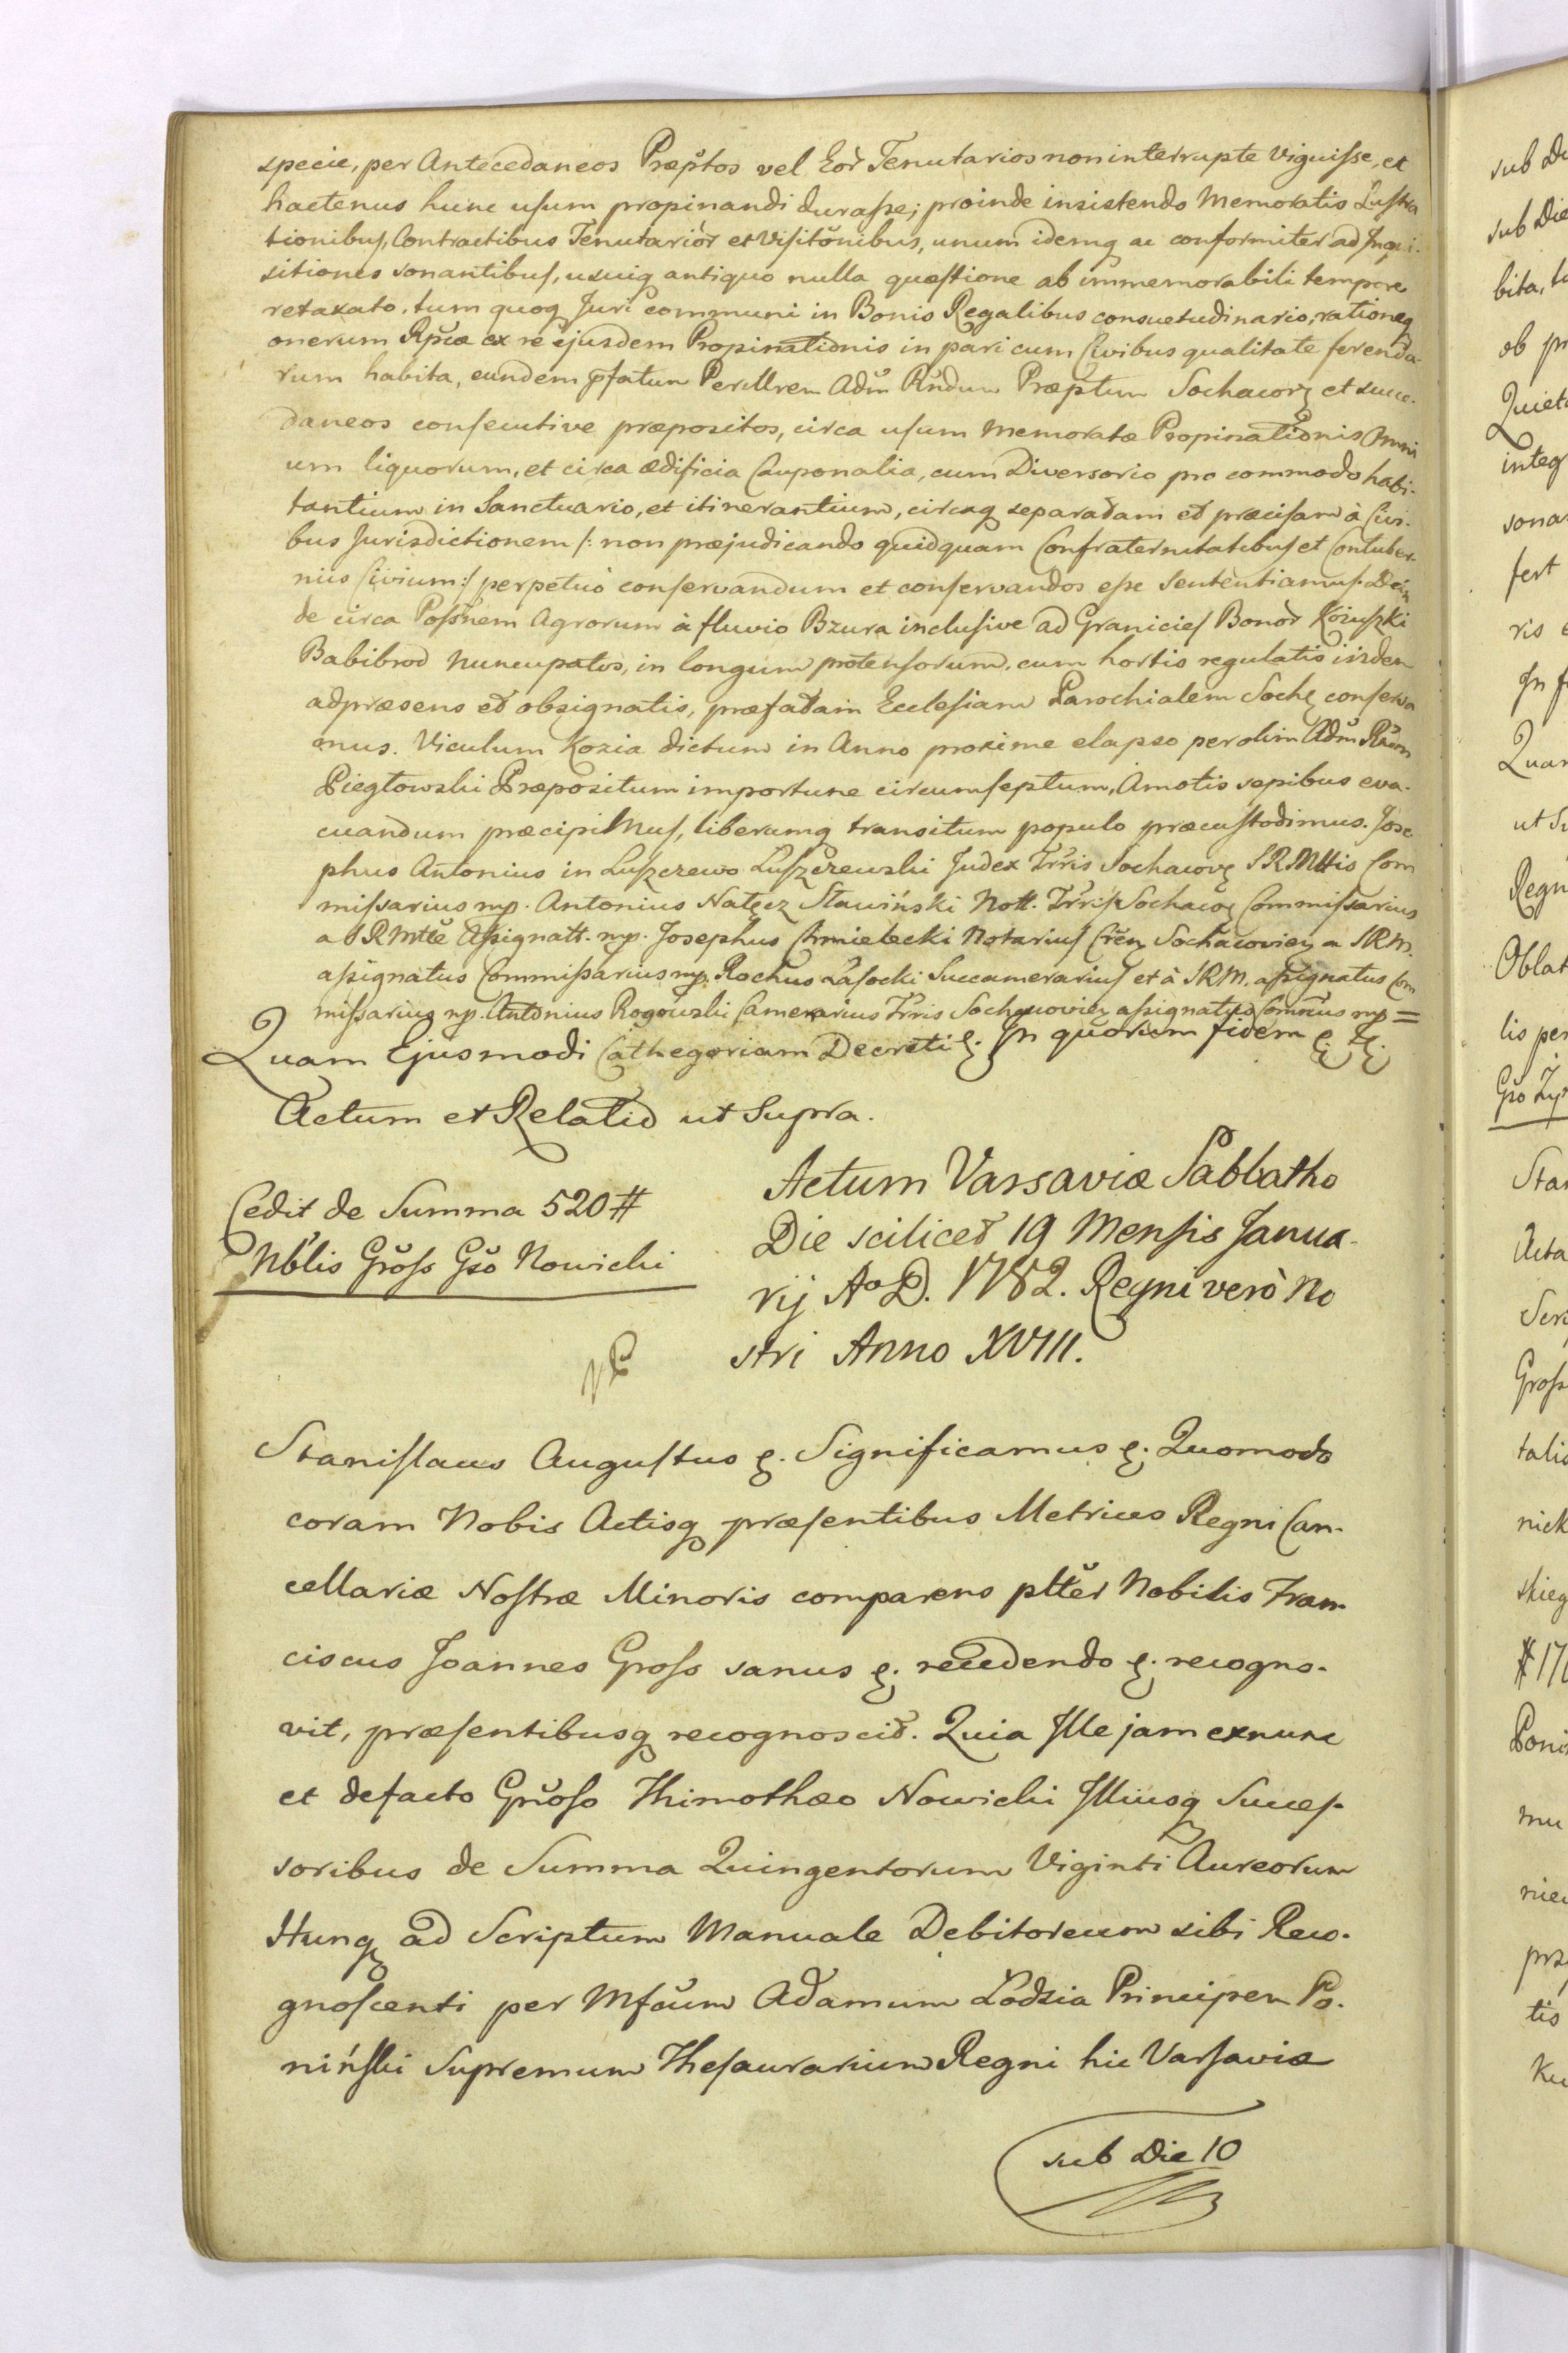 specie, per Antecedaneos Præptos vel Eor Tenutarios non interrupte Viguiſse, et
hactenus hunc uſum propinandi duraſse; proinde insistendo Memoratis Luſtra
tionibuſ, Contractibus Tenutarior et Viſitonibus, unum idemq ac conformiter ad Inqui-
sitiones sonantibuſ, usuiq antiquo nulla quæſtione ab immemorabili tempore
retaxato, tum quoq Juri communi in Bonis Regalibus consuetudinario, rationeq
onerum Rpcæ ex re ejusdem Propinationis in pari cum Civibus qualitate ferenda-
rum habita, eundem pfatum Perillrem Adm Rndum Præptum Sochacov et succe-
daneos conſecutive præpositos, circa uſum Memoratæ Propinationis Omni
um liquorum, et circa ædificia Cauponalia, cum Diversorio pro commodo habi-
tantium in Sanctuario, et itinerantium, circaq separatam et præciſam à Civi-
bus Jurisdictionem /: non præjudicando quidquam Confraternitatibuſ et Contuber-
niis Civium :/ perpetuò conſervandum et conſervandos eſse Sententiamuſ. Dein
de circa Poſsnem Agrorum à fluvio Bzura incluſive ad Granicieſ Bonor Kożuſzki
Babibrod nuncupatos, in longum protenſorum, cum hortis regulatis iisdem
adpræsens et obsignatis, præfatam Eccleſiam Parochialem Soch conſerva
mus. Viculum Kozia dictum in Anno proxime elapso per olim Adm Rdum
Piegłowski Præpositum importune circumſeptum, Amotis sepibus eva-
cuandum præcipimuſ, liberumq transitum populo præcuſtodimus. Jose
phus Antonius in Luſzczewo Luſzczewski Judex Trris Sochacov SRMttis Com
miſsarius mp. Antonius Nałęcz Sławiński Nott. Trriſ Sochacov Commiſsarius
a SRMtte Aſsignatt. mp. Josephus Chmielecki Notariuſ Cren Sochacovien a SRM.
aſsignatus Commiſsarius mp. Rochus Laſocki Succamerariuſ et à SRM. aſsignatus Com
miſsarius mp. Antonius Rogowski Camerarius Trris Sochacovien aſsignatus Commrius mp =
Quam Ejusmodi Cathegoriam Decreti &. In quorum fidem &. &.
Actum et Relatio ut Supra.
Cedit de Summa 520 #
Nblis Groſs Gso Nowicki
Actum Varsaviæ Sabbatho
Die scilicet 19 Menſis Janua-
rij Aº D. 1782. Regni verò No
stri Anno XVIII.
Staniſlaus Auguſtus &. Significamus &. Quomodo
coram Nobis Actisq præſentibus Metrices Regni Can-
cellariæ Noſtræ Minoris comparens ptter Nobilis Fran-
ciscus Joannes Groſs sanus &. recedendo &. recogno-
vit, præſentibusq recognoscit. Quia Ille jam exnunc
et defacto Gnroſo Thimothæo Nowicki Illiusq Succeſ-
soribus de Summa Quingentorum Viginti Aureorum
Hung ad Scriptum Manuale Debitoreum sibi Reco-
gnoſcenti per Mfcum Adamum Łodzia Principem Po-
nińſki Supremum Theſaurarium Regni hic Varſaviæ
sub Die 10